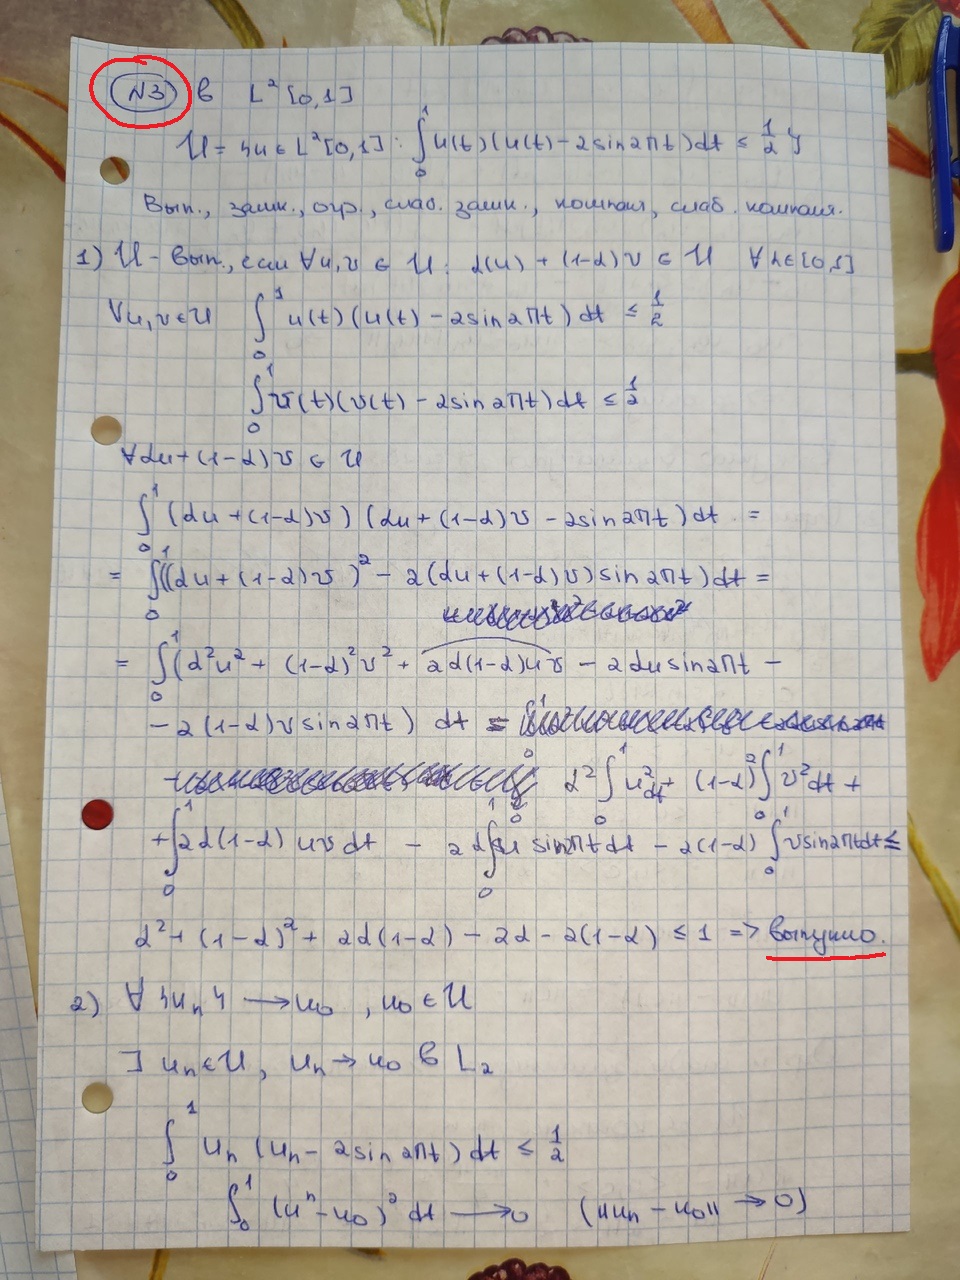 N3 в L² [0,1]
U = {u ∈ L²[0,1] : ∫₀¹ u(t)(u(t) − 2 sin 2πt) dt ≤ 1/2}
Вып., замк., огр., слаб. замк., компакт, слаб. компакт.
1) U - вып., если ∀u, v ∈ U : α(u) + (1-α)v ∈ U ∀ λ ∈ [0,1]
∀u, v ∈ U ∫₀¹ u(t)(u(t) − 2 sin 2πt) dt ≤ 1/2
∫₀¹ v(t)(v(t) − 2 sin 2πt) dt ≤ 1/2
∀αu + (1-α)v ∈ U
∫₀¹ (αu + (1-α)v) (αu + (1-α)v − 2 sin 2πt) dt =
= ∫₀¹ ((αu + (1-α)v)² − 2(αu + (1-α)v) sin 2πt) dt =
= ∫₀¹ (α²u² + (1-α)²v² + 2α(1-α)uv − 2αu sin 2πt −
− 2(1-α)v sin 2πt) dt =
α² ∫₀¹ u² dt + (1-α)² ∫₀¹ v² dt +
+ ∫₀¹ 2α(1-α) uv dt − 2α ∫₀¹ u sin 2πt dt − 2(1-α) ∫₀¹ v sin 2πt dt ≤
α² + (1-α)² + 2α(1-α) − 2α − 2(1-α) ≤ 1 => выпукло.
2) ∀ {uₙ} → u₀, u₀ ∈ U
∃ uₙ ∈ U, uₙ → u₀ в L₂
∫₀¹ uₙ (uₙ − 2 sin 2πt) dt ≤ 1/2
∫₀¹ (uⁿ − u₀)² dt → 0 (||uₙ − u₀|| → 0)